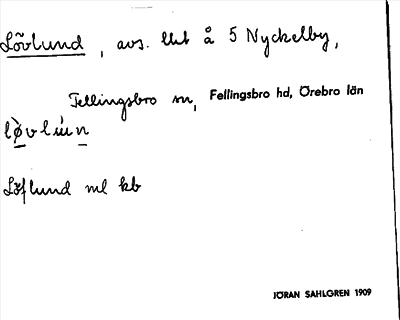 Lövlund, avs. lht å 5 Nyckelby,
Fellingsbro sn, Fellingsbro hd, Örebro län
Löflund ml kb
JÖRAN SAHLGREN 1909